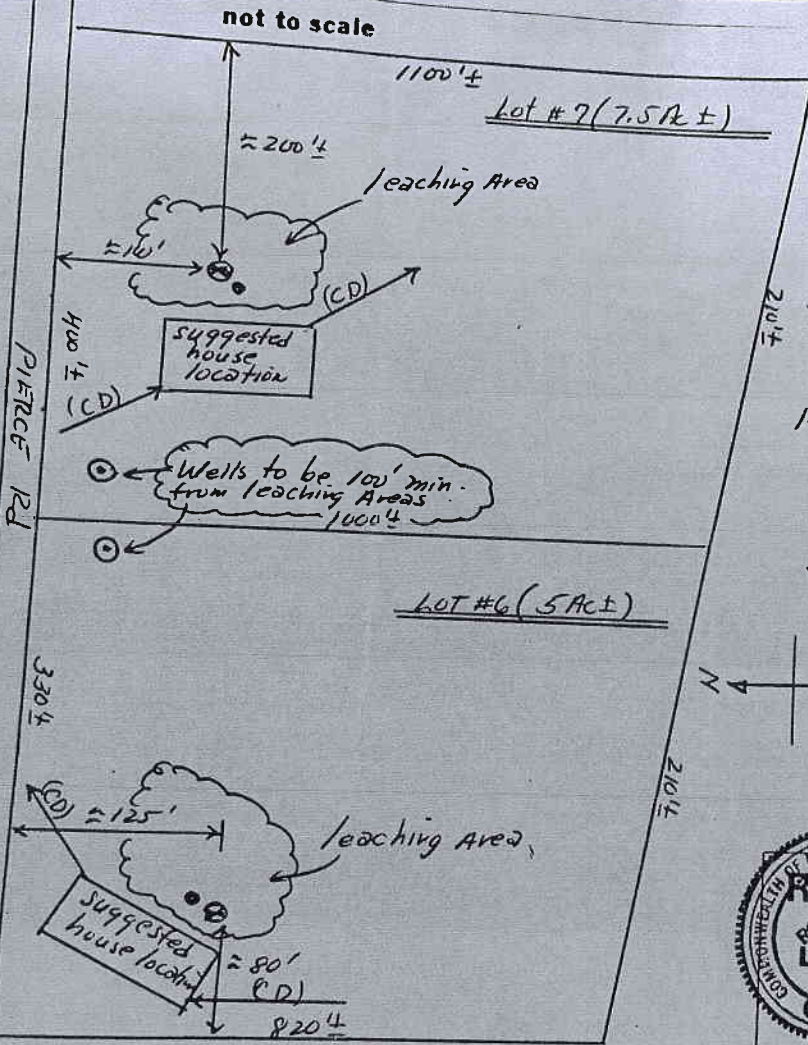 not to scale
1100'±
Lot #7 (7.5 Ac ±)
≈200'±
leaching Area
(CD)
suggested
house
location
400'±
(CD)
210'±
PIERCE Rd
Wells to be 100' min.
from leaching Areas
1000'±
LOT #6 (5 Ac ±)
N
330'±
210'±
(CD)
≈125'
leaching Area
suggested
house location
≈80'
(CD)
820'±
COMMONWEALTH OF